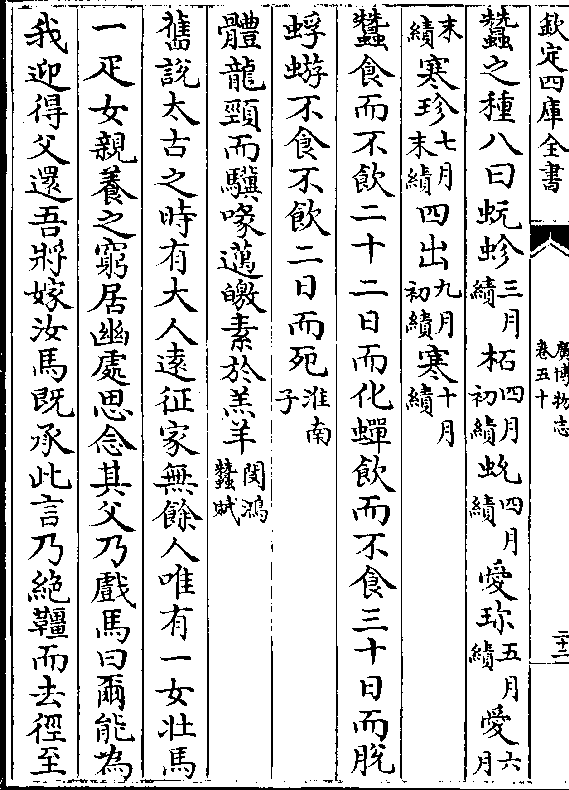 欽定四庫全書
廣博物志
卷五十
二十二
蠶之種八曰蚖蛉三月績柘四月初績蚖四月績愛珍五月績愛六月
末績寒珍七月末績四出九月初績寒十月績
蠶食而不飲二十二日而化蟬飲而不食三十日而脫
蜉蝣不食不飲三日而死淮南子
體龍頸而驥喙邁皦素於羔羊閔鴻蠶賦
舊說太古之時有大人遠征家無餘人唯有一女壯馬
一疋女親養之窮居幽處思念其父乃戲馬曰爾能為
我迎得父還吾將嫁汝馬既承此言乃絶韁而去徑至